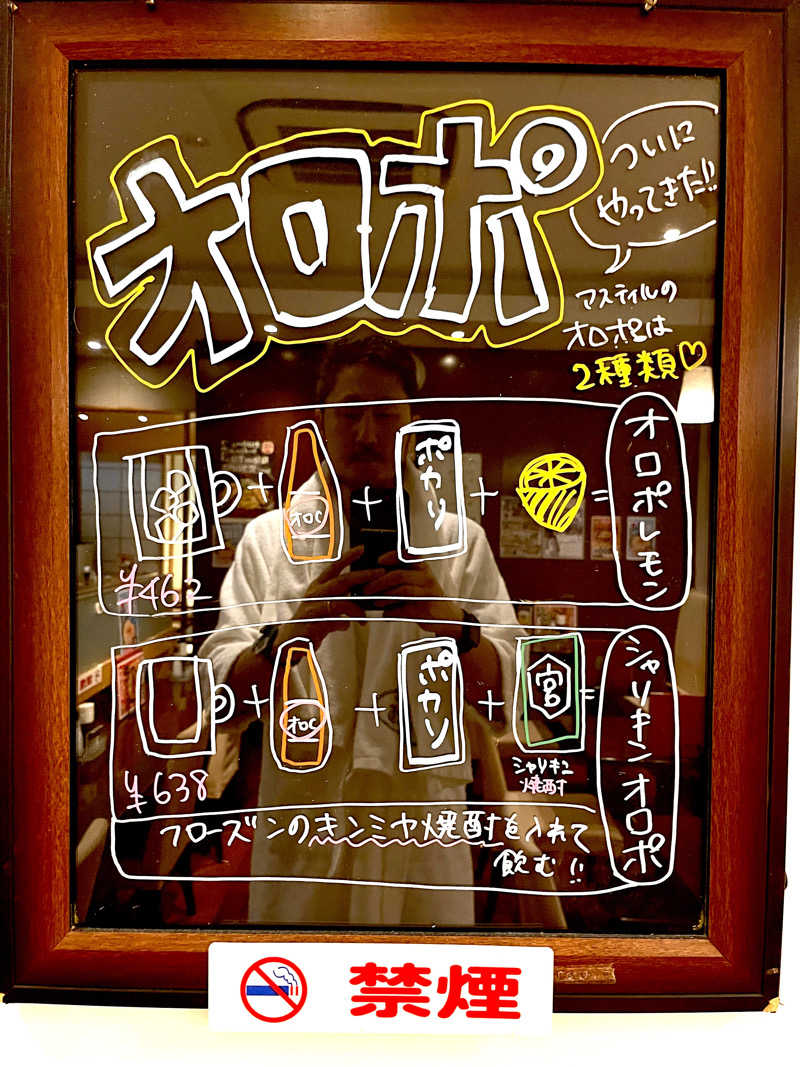 オロポ
ついに
やってきた!!
アスティルの
オロポは
2種類♡
オロC
ポカリ
オロポレモン
¥462
オロC
ポカリ
宮
シャリキン
焼酎
シャリキンオロポ
¥638
フローズンのキンミヤ焼酎を入れて
飲む!!
禁煙